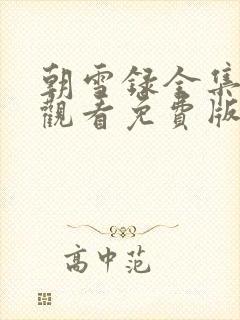 朝雪録全集
觀看免費版
高中范